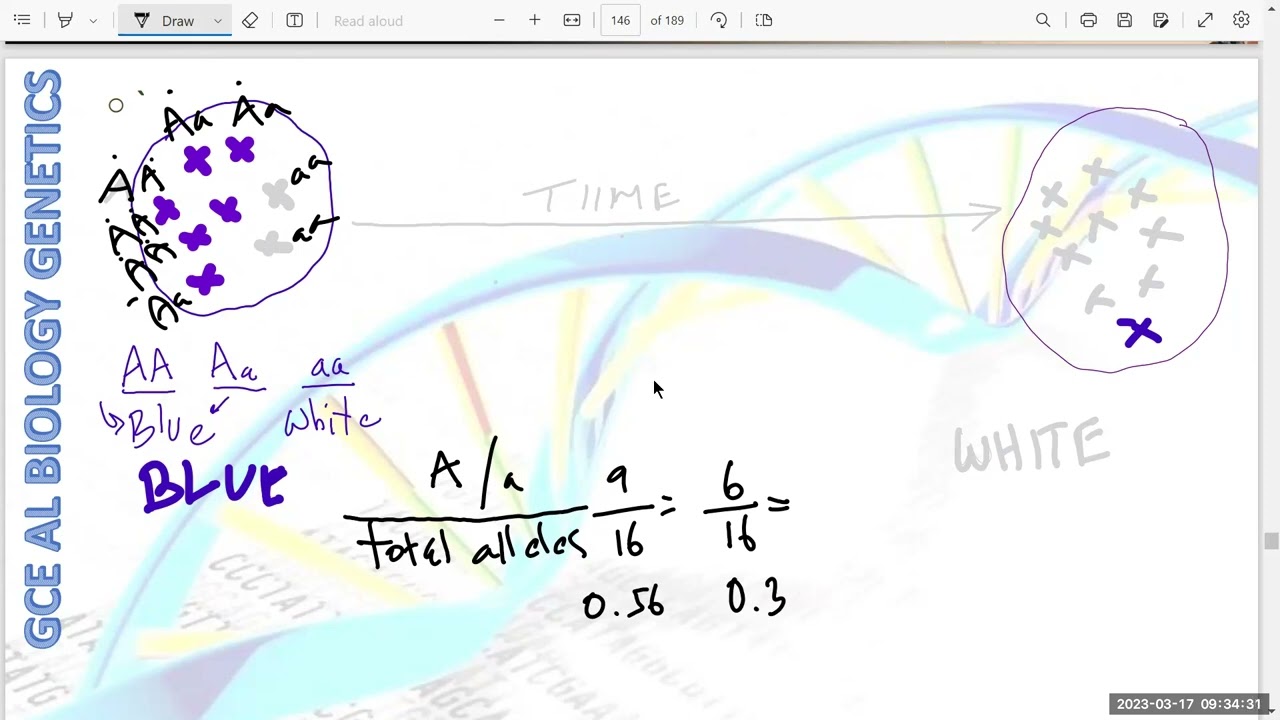 Draw
Read aloud
146
of 189
GCE AL BIOLOGY GENETICS
Aa Aa
aa
AA
aa
AA
AA
Aa
TIIME
AA Aa aa
Blue White
BLUE
WHITE
A/a
Total alleles
9
16
=
6
16
=
0.56 0.3
2023-03-17 09:34:31